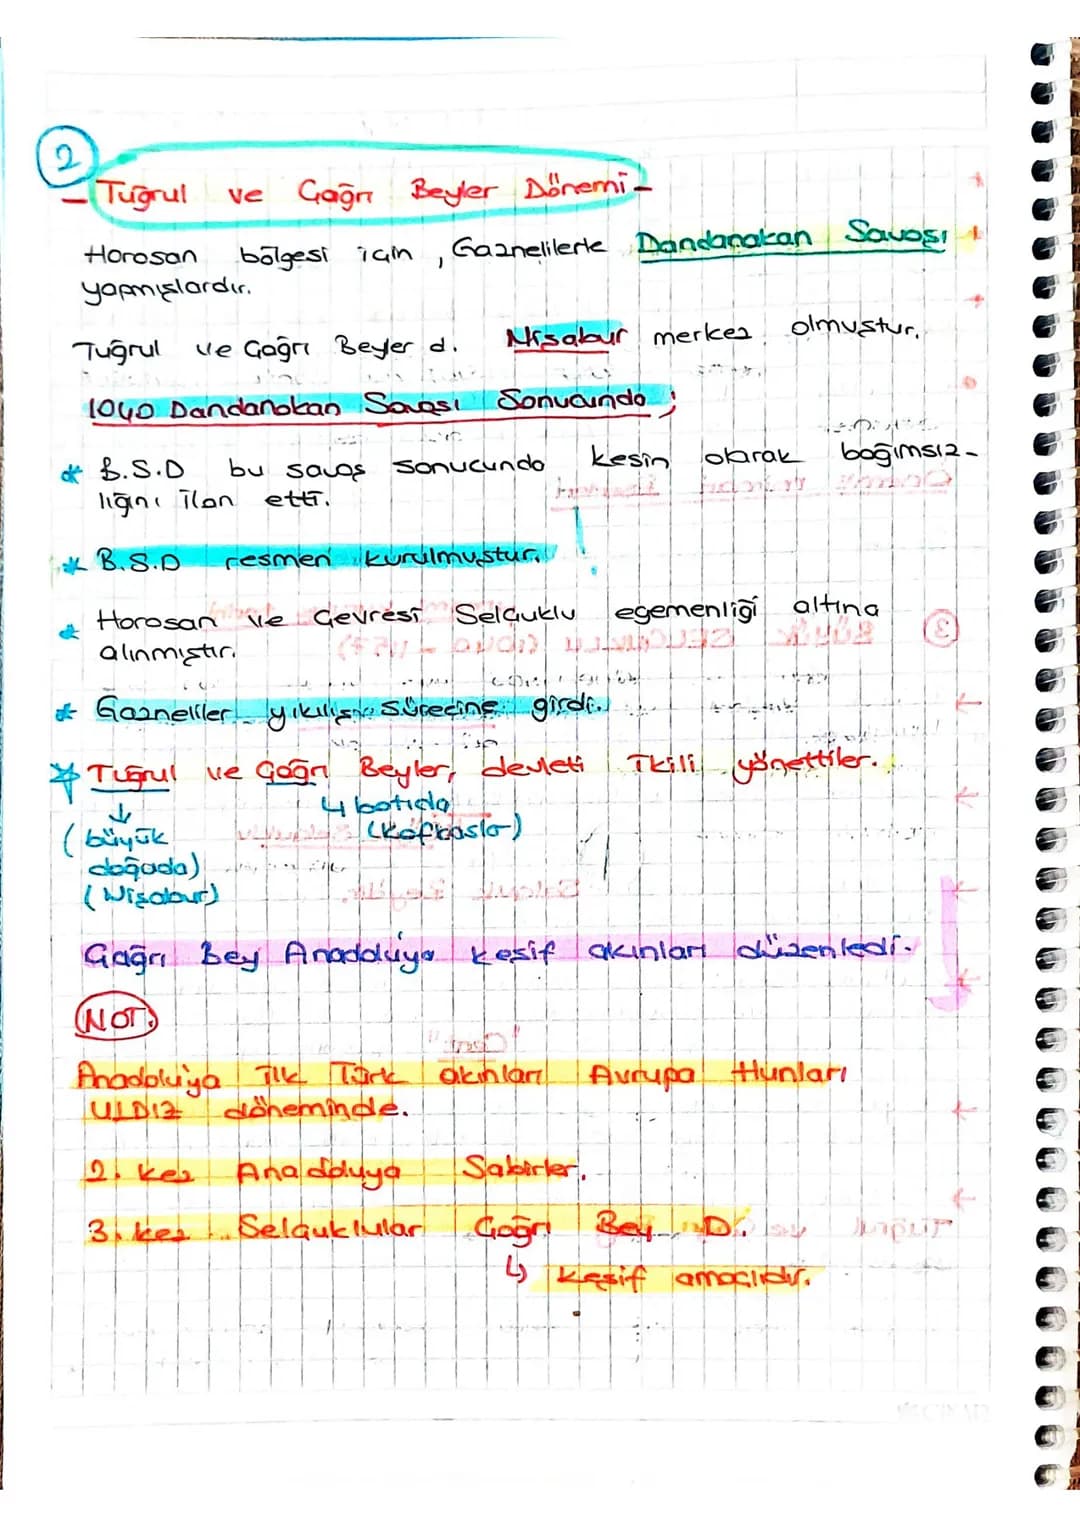 2
- Tuğrul ve Çağrı Beyler Dönemi -
Horosan bölgesi için, Gaznelilerle Dandanakan Savaşı
yapmışlardır.
Tuğrul ve Çağrı Beyler d. Nişabur merkez olmuştur.
1040 Dandanakan Savaşı Sonucunda ;
* B.S.D bu savaş sonucunda kesin olarak bağımsız-
lığını ilan etti.
* B.S.D resmen kurulmuştur.
* Horosan ve Çevresi Selçuklu egemenliği altına
alınmıştır.
* Gazneliler yıkılış sürecine girdi.
* Tuğrul ve Çağrı Beyler, devleti İkili yönettiler.
↓ ↳ batıda
(büyük (Kafkaslar)
doğuda)
(Nişabur)
Çağrı Bey Anadoluya keşif akınları düzenledi.
NOT:
Anadolu'ya ilk Türk akınları Avrupa Hunları
ULDIZ döneminde.
2. kez Anadoluya Sabirler.
3. kez Selçuklular Çağrı Bey D.
↳ keşif amaçlıdır.